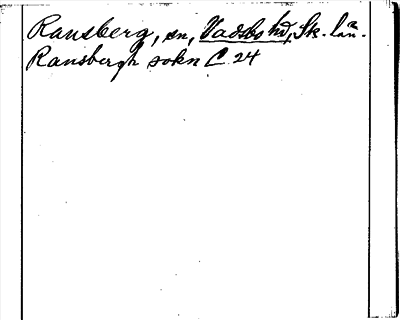 Ransberg, sn, Vadsbo hd, Sk. län.
Ransbergh sokn C 24